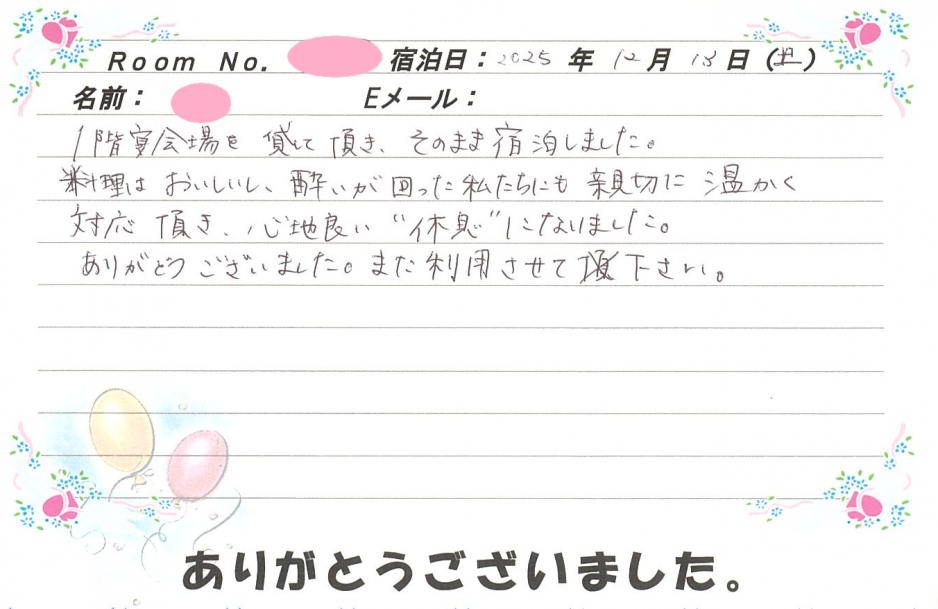 Room No. 宿泊日：2025 年 12 月 13 日 (土)
名前： Eメール：
1階宴会場を 貸して 頂き、そのまま 宿泊しました。
料理は おいしいし、酔いが 回った 私たちにも 親切に 温かく
対応 頂き、心地良い “休息” になりました。
ありがとう ございました。また 利用 させて 下さい。
ありがとうございました。